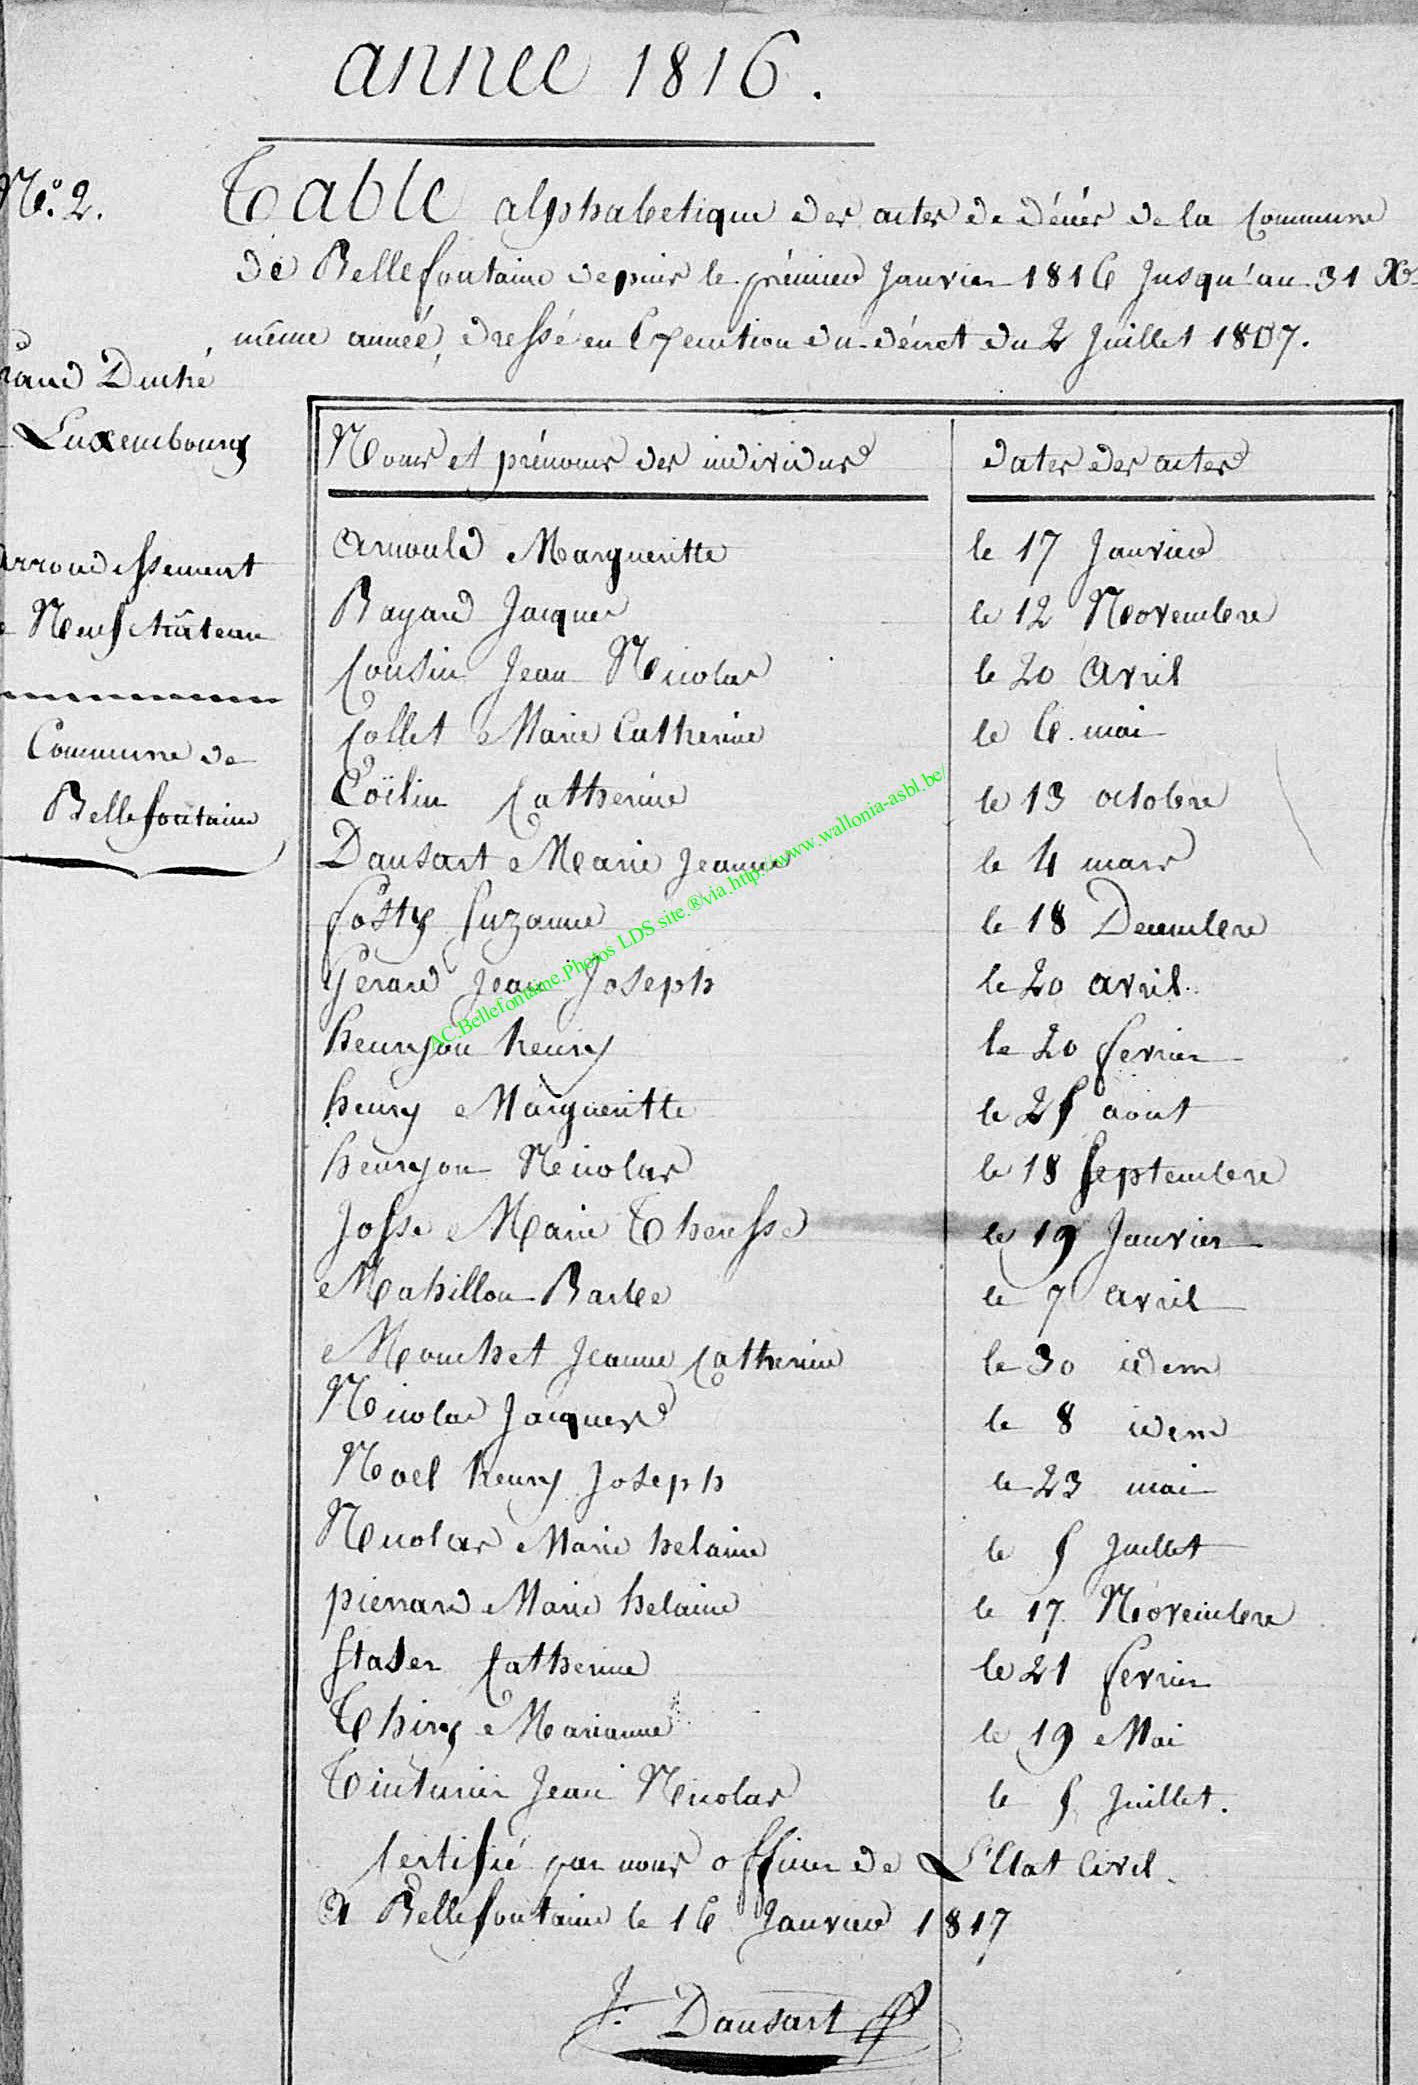 année 1816.
No. 2.
Table alphabetique des actes de décès de la Commune
de Bellefontaine depuis le prémier Janvier 1816 Jusqu'au 31 Xbre
même année, dressé en Execution du décret du 2 Juillet 1807.
rand Duché
Luxembourg
arrondessement
Neufchâteau
Commune de
Bellefontaine
Noms et prénoms des individus
dates des actes
Arnould Margueritte le 17 Janvier
Bayard Jacques le 12 Novembre
Cousin Jean Nicolas le 20 Avril
Collet Marie Catherine le 6 mai
Coïlin Catherine le 13 octobre
Dansart Marie Jeanne le 4 mars
fosty Suzanne le 18 Decembre
Gerard Jean Joseph le 20 avril
henryon henry le 20 fevrier
henry Margueritte le 25 aout
henryon Nicolas le 18 Septembre
Josse Marie Theresse le 19 Janvier
Mahillon Barbe le 7 avril
Mouchet Jeanne Catherine le 30 idem
Nicolas Jacques le 8 idem
Noel henry Joseph le 23 mai
Nicolas Marie helaine le 5 Juillet
pierrard Marie helaine le 17 Novembre
Staser Catherine le 21 fevrier
Thiry Marianne le 19 Mai
Tinturier Jean Nicolas le 5 Juillet.
Certifié par nous officier de L'Etat Civil.
A Bellefontaine le 16 Janvier 1817
J. Dansart
AC.Bellefontaine.Photos LDS site.®via.http://www.wallonia-asbl.be/